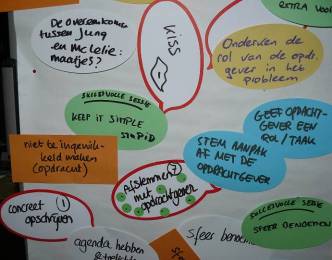 De overeenkomst
tussen Jung
en McLelie:
maatjes?
KISS
EXTRA
Onderken de
rol van de opdr.
gever in het
probleem
SUCCESVOLLE SESSIE
KEEP IT SIMPLE
STUPID
GEEF OPDRACHT-
GEVER EEN
ROL / TAAK
STEM AANPAK
AF MET DE
OPDRACHTGEVER
niet te ingewik-
keld maken
(opdracht)
Afstemmen ?
met
opdrachtgever
concreet 1
opschrijven
SUCCESVOLLE SESSIE
SFEER BENOEMEN
sfeer benoemen
agenda hebben